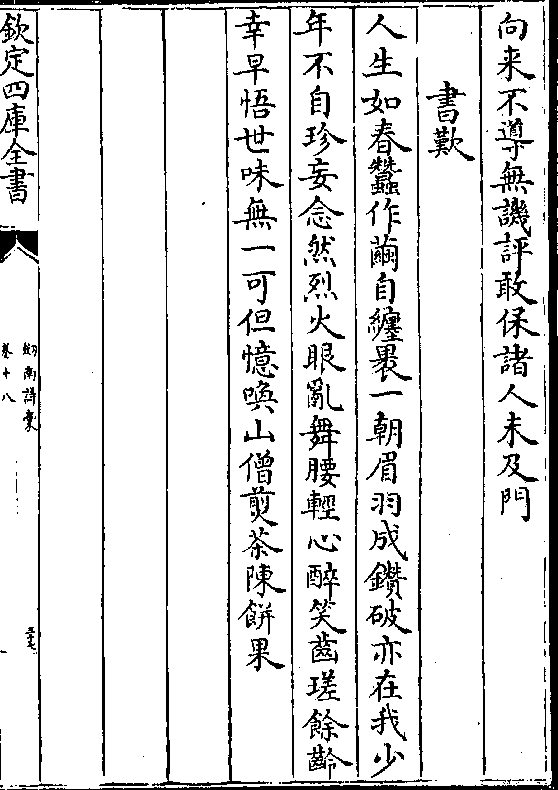 向来不導無譏評敢保諸人未及門
書歎
人生如春蠶作繭自纏裹一朝眉羽成鑽破亦在我少
年不自珍妄念然烈火眼亂舞腰輕心醉笑齒瑳餘齡
幸早悟世味無一可但憶喚山僧煎茶陳餅果
欽定四庫全書
劍南詩稾
卷十八